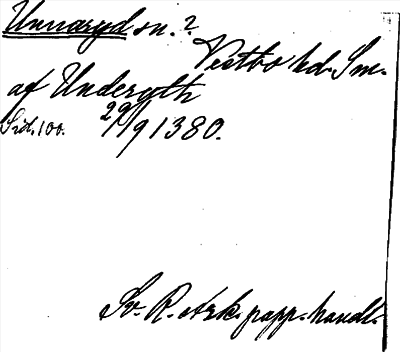 Unnaryd sn.?
Vestbo hd. Sm.
af Underyth
Sid. 100. 29/9 1380.
Sv. R. Ark. papp. handl.